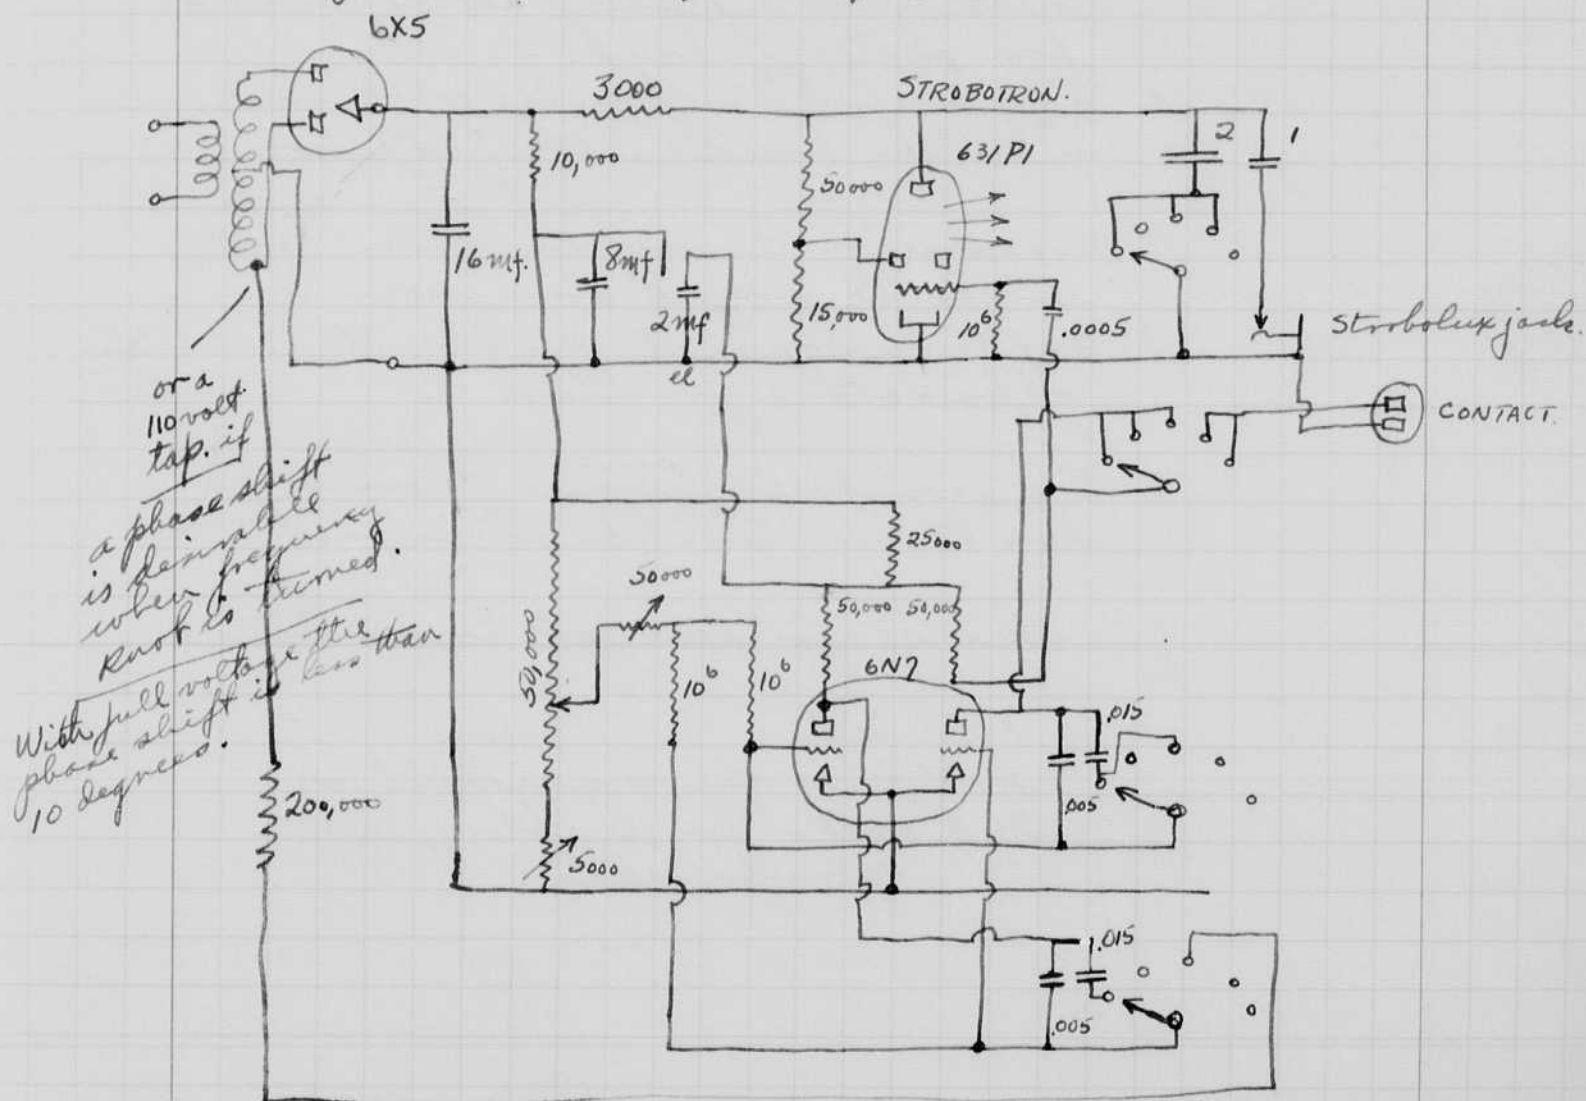 6X5
3000
STROBOTRON.
10,000
50000
631P1
2
1
16mf.
8mf
2mf
15,000
10⁶
.0005
Strobolux jack.
el
or a
110 volt.
tap. if
a phase shift
is desirable
when frequency
knob is turned.
With full voltage the
phase shift is less than
10 degrees.
CONTACT.
25000
50000
50,000
50,000
50,000
10⁶
10⁶
6N7
.015
.005
200,000
5000
.015
.005